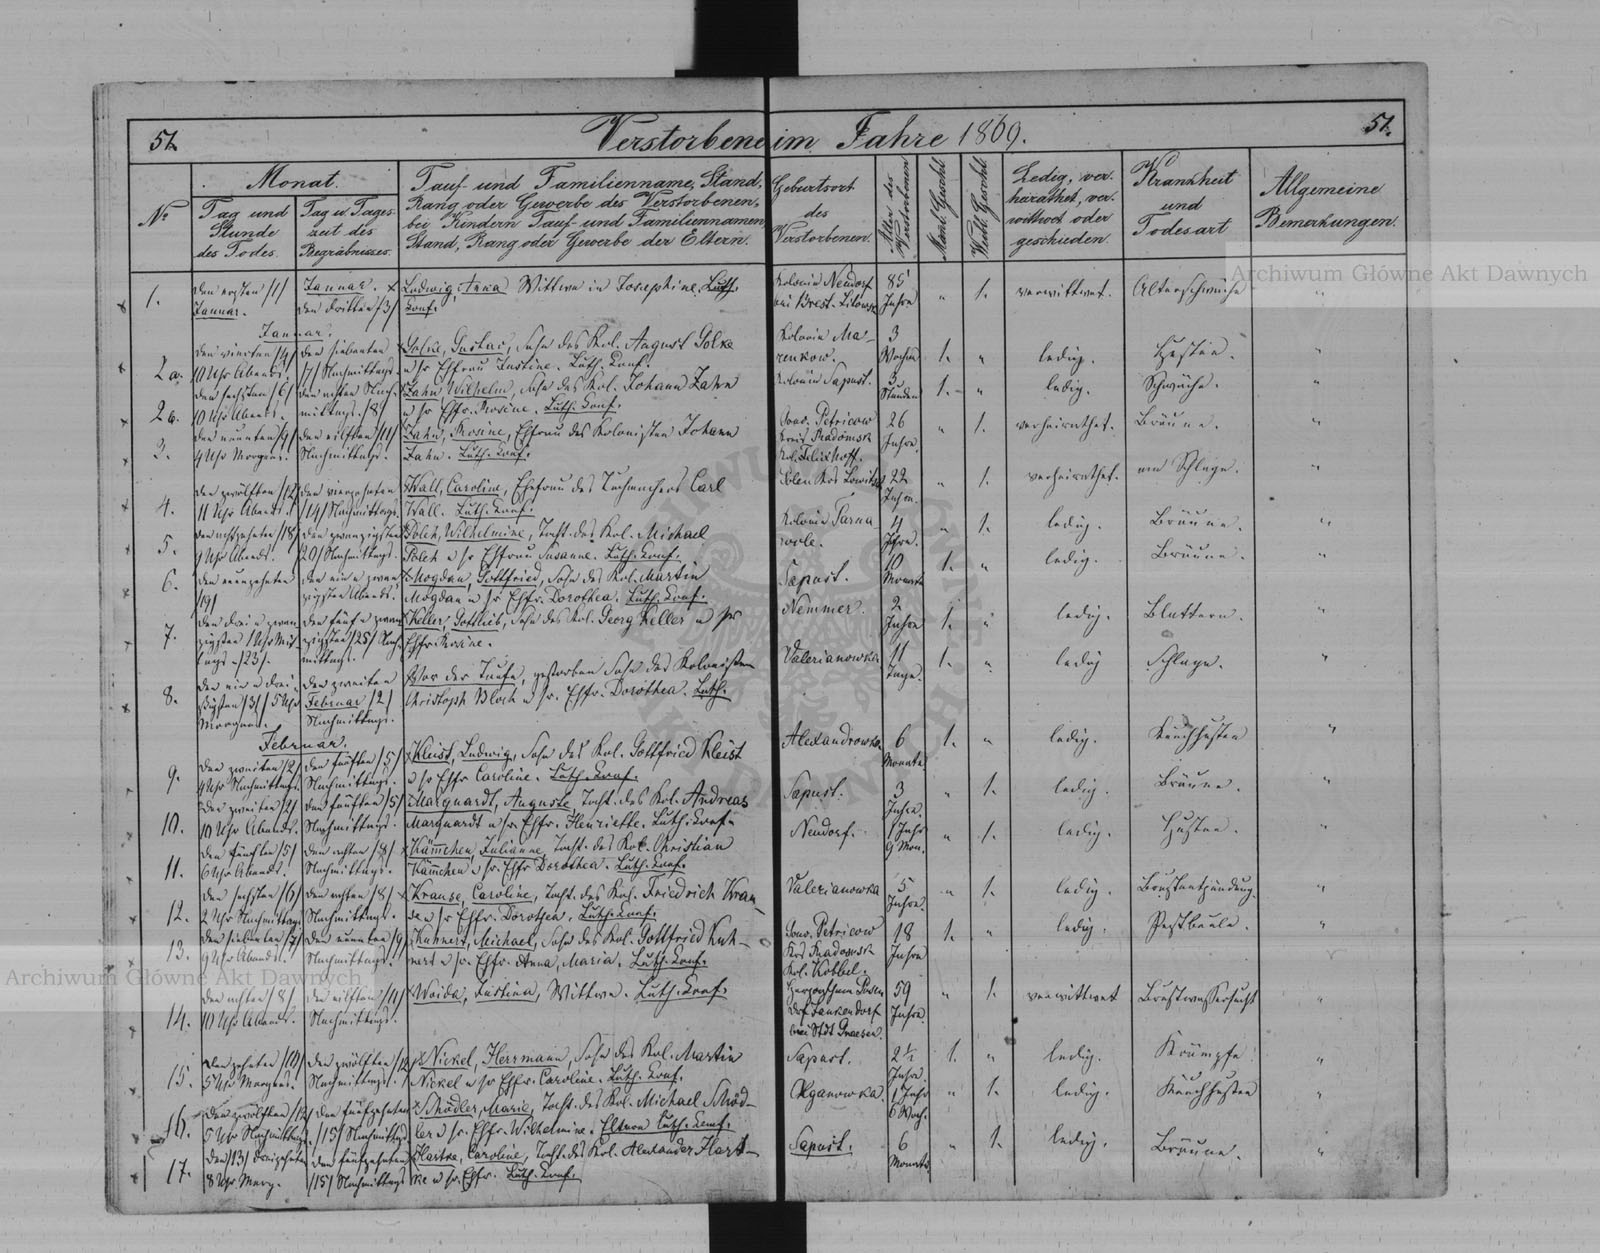 51.
Verstorbene im Jahre 1869.
51.
Nº
Monat.
Tag und Stunde des Todes.
Tag u. Tageszeit des Begräbnisses.
Tauf- und Familienname, Stand,
Rang oder Gewerbe des Verstorbenen,
bei Kindern Tauf- und Familiennamen,
Stand, Rang oder Gewerbe der Eltern.
Geburtsort
des
Verstorbenen.
Alter des Verstorbenen
Mänl. Geschl.
Weibl. Geschl.
Ledig, ver-
heirathet, ver-
wittwet oder
geschieden.
Krankheit
und
Todesart
Allgemeine
Bemerkungen.
1. den ersten /1/ Januar. Januar. den dritten /3/ Ludwig, Anna Wittwe in Josephine. Luth. Conf. Kolonie Neudorf bei Brest-Litowsk 85 Jahre " 1. verwittwet. Altersschwäche "
Januar.
2a. den vierten /4/ 10 Uhr Abends. den siebenten /7/ Nachmittags. Golke, Gustav, Sohn des Kol. August Golke u. sr Ehefrau Justine. Luth. Conf. Kolonie 3 Wochen 1. " ledig. Husten. "
2b. den sechsten /6/ 10 Uhr Abends. den achten Nachmittags. /8/ Zahn, Wilhelm, Sohn des Kol. Johann Zahn u. sr Ehfr. Rosine. Luth. Conf. Kolonie Sapust. 3 Stunden 1. " ledig. Schwäche. "
3. den neunten /9/ 4 Uhr Morgens. den eilften /11/ Nachmittags. Zahn, Rosine, Ehfrau des Kolonisten Johann Zahn. Luth. Conf. Gouv. Petricow Kreis Radomsk 26 Jahre. " 1. verheirathet. Bräune. "
4. den zwölften /12/ 11 Uhr Abends. den vierzehnten /14/ Nachmittags. Wall, Caroline, Ehefrau des Tuchmachers Carl Wall. Luth. Conf. Polen 22 Jahre. " 1. verheirathet. am Schlage. "
5. den achtzehnten /18/ Uhr Abends. den zwanzigsten /20/ Nachmittags. Polch, Wilhelmine, Tocht. des Kol. Michael Polch u. sr Ehfrau Susanne. Luth. Conf. Kolonie 4 Jahre. " 1. ledig. Bräune. "
6. den neunzehnten /19/ den ein u. zwanzigsten Abends. Mogdan, Gottfried, Sohn des Kol. Martin Mogdan u. sr Ehfr. Dorothea. Luth. Conf. Sapust. 10 Monate 1. " ledig. Bräune. "
7. den drei u. zwanzigsten 1 Uhr Mittags /23/. den fünf u. zwanzigsten /25/ Nachmittags. Keller, Gottlieb, Sohn des Kol. Georg Keller u. sr Ehfr. Rosine. Nemmer. 2 Jahre 1. " ledig. Blattern. "
8. den ein u. dreißigsten /31/ 5 Uhr Morgens. den zweiten Februar /2/ Nachmittags. Vor der Taufe, gestorben Sohn des Kolonisten Christoph Bloch u. sr. Ehfr. Dorothea. Luth. Valerianowka 11 Tage. 1. " ledig Schlage. "
Februar.
9. den zweiten /2/ 4 Uhr Nachmittags. den fünften /5/ Nachmittags. Kleist, Ludwig, Sohn des Kol. Gottfried Kleist u. sr Ehfr Caroline. Luth. Conf. Alexandrowka. 6 Monate 1. " ledig. Keuchhusten "
10. den zweiten /2/ 10 Uhr Abends. den fünften /5/ Nachmittags. Marquardt, Auguste, Tocht. des Kol. Andreas Marquardt u. sr. Ehfr. Henriette. Luth. Conf. Sapust. 3 Jahre. " 1. ledig. Bräune. "
11. den fünften /5/ 6 Uhr Abends. den achten /8/ Nachmittags. Kämchen, Julianne, Tocht. des Kol. Christian Kämchen u. sr. Ehfr Dorothea. Luth. Conf. Neudorf. 1 Jahr 9 Mon. " 1. ledig. Husten. "
12. den sechsten /6/ 2 Uhr Nachmittags den achten /8/ Nachmittags. Krause, Caroline, Tocht. des Kol. Friedrich Krause u. sr Ehfr. Dorothea. Luth. Conf. Valerianowka 5 Jahre. " 1. ledig. Brustentzündung. "
13. den siebenten /7/ 9 Uhr Abends. den neunten /9/ Nachmittags. Kuhnert, Michael, Sohn des Kol. Gottfried Kuhnert u. sr. Ehfr. Anna, Maria. Luth. Conf. Gouv. Petricow Krs Radomsk Kol. Kobbel. 18 Jahre 1. " ledig. Pestbeule. "
14. den achten /8/ 10 Uhr Abends. den eilften /11/ Nachmittags. Woida, Justina, Wittwe. Luth. Conf. Herzogthum Posen Drf. Jankendorf bei Stdt 59 Jahre. " 1. verwittwet Brustwassersucht "
15. den zehnten /10/ 5 Uhr Morgens. den zwölften /12/ Nachmittags. Nickel, Herrmann, Sohn des Kol. Martin Nickel u. sr Ehfr. Caroline. Luth. Conf. Sapust. 2½ Jahre 1. " ledig. Krämpfe. "
16. den zwölften /12/ 5 Uhr Nachmittags. den fünfzehnten /15/ Nachmittags. Schädler, Marie, Tocht. des Kol. Michael Schädler u. sr. Ehfr. Wilhelmine. Eltern Luth. Conf. Olganowka. 1 Jahr 6 Woch. " 1. ledig. Keuchhusten "
17. den /13/ dreizehnten 8 Uhr Morg. den fünfzehnten /15/ Nachmittags Hartke, Caroline, Tocht. des Kol. Alexander Hartke u. sr. Ehfr. Luth. Conf. Sapust. 6 Monate " 1. ledig. Bräune. "
Archiwum Główne Akt Dawnych
Archiwum Główne Akt Dawnych